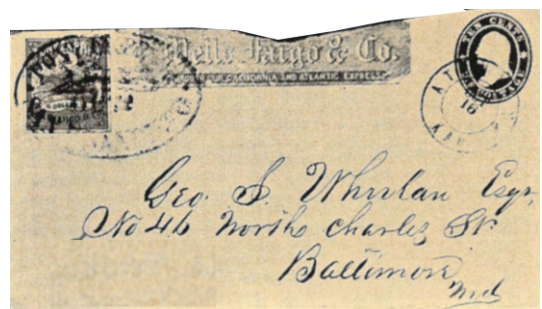 Wells Fargo & Co.
THROUGH OUR CALIFORNIA AND ATLANTIC EXPRESS
TEN CENTS
U.S. POSTAGE
Geo. S. Whelan Esqr,
No 46 North Charles St
Baltimore
Md